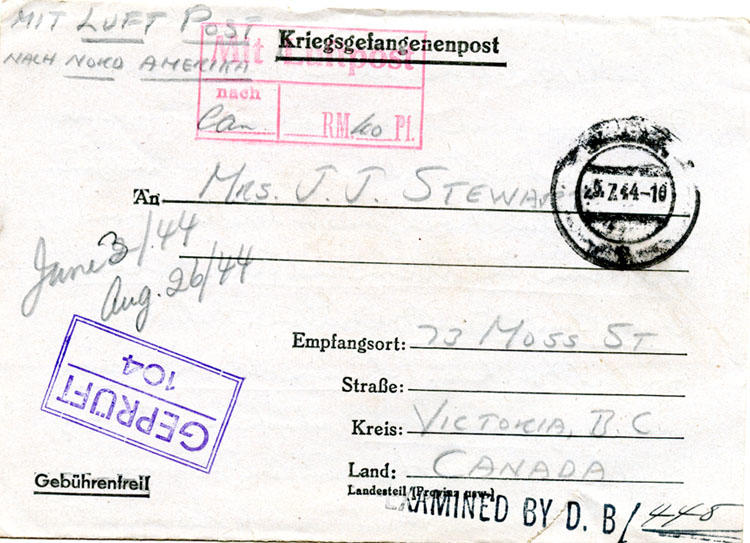 MIT LUFT POST
NACH NORD AMERIKA
Kriegsgefangenenpost
Mit Luftpost
nach
Can. RM. 40 Pf.
An Mrs. J. J. STEWART
5.7.44-10
June 3/44
Aug. 26/44
GEPRÜFT
104
Empfangsort: 73 MOSS ST
Straße:
Kreis: VICTORIA, B.C.
Land: CANADA
Landesteil (Provinz usw.)
Gebührenfrei!
EXAMINED BY D. B/ 448